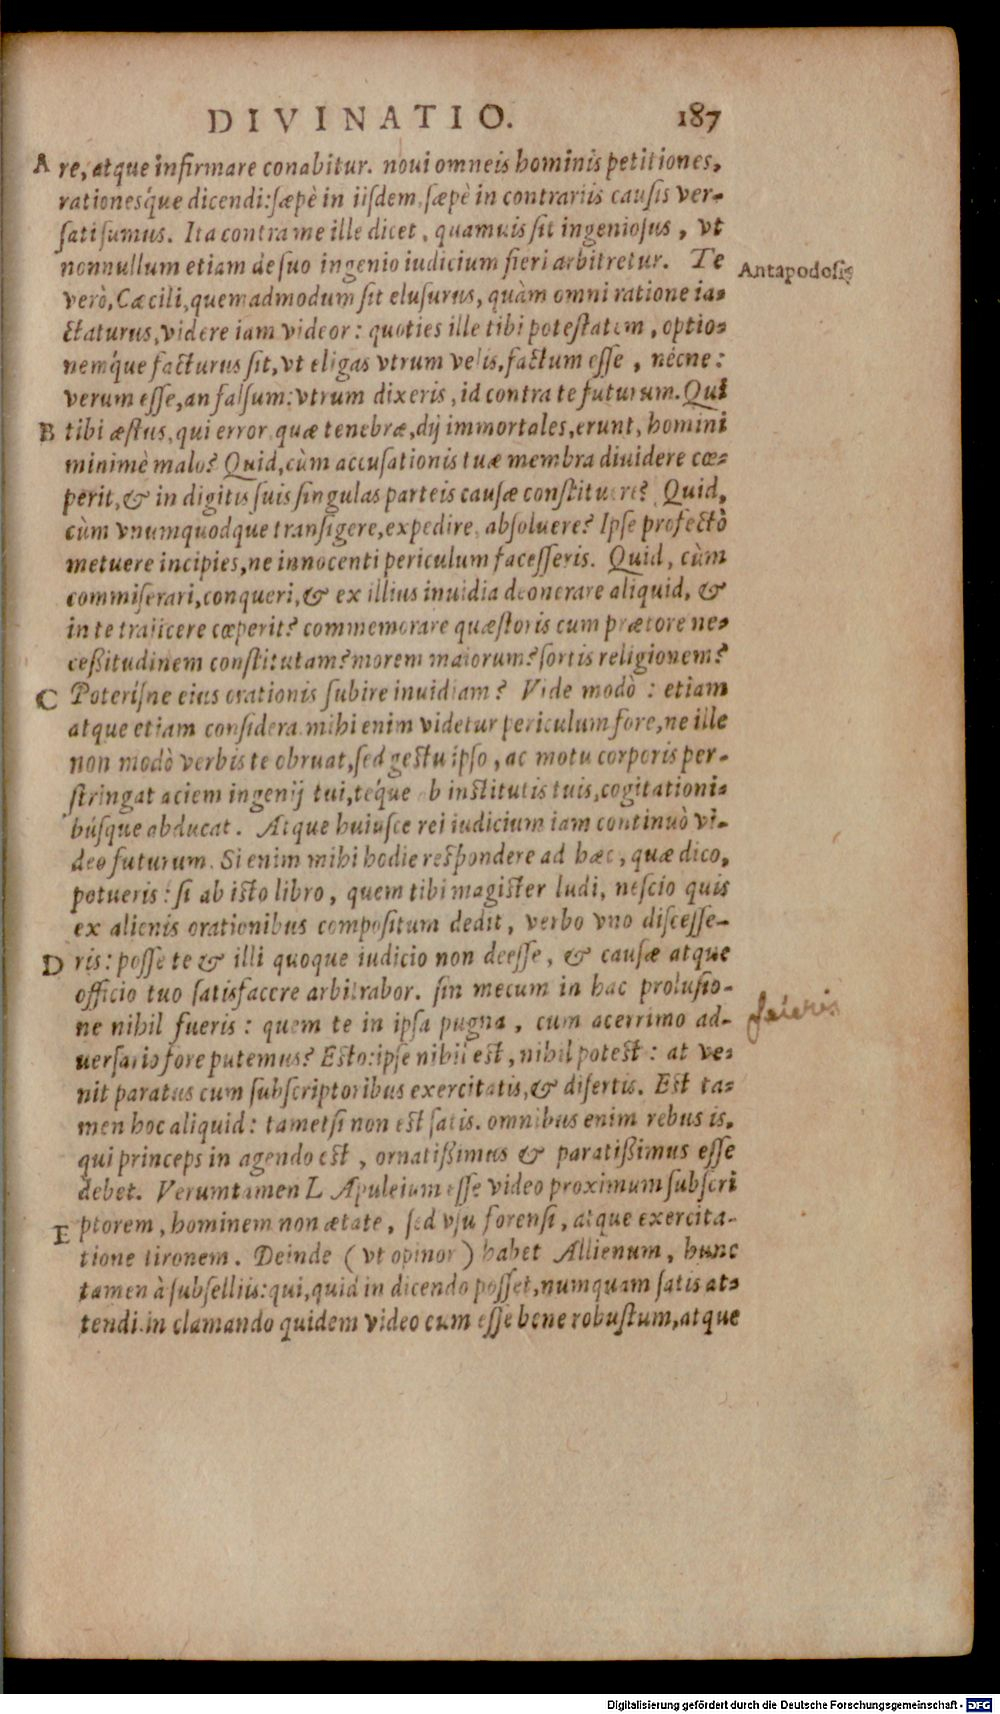 DIVINATIO. 187
A re, atque infirmare conabitur. noui omneis hominis petitiones,
rationesq́ue dicendi: sæpè in iisdem, sæpè in contrariis causis ver-
sati sumus. Ita contra me ille dicet, quamuis sit ingeniosus, vt
nonnullum etiam de suo ingenio iudicium fieri arbitretur. Te
Antapodosis
verò, Cæcili, quemadmodum sit elusurus, quàm omni ratione ia-
ctaturus, videre iam videor: quoties ille tibi potestatem, optio-
nemq́ue facturus sit, vt eligas vtrum velis, factum esse, nécne:
verum esse, an falsum: vtrum dixeris, id contra te futurum. Qui
B tibi æstus, qui error, quæ tenebræ, dij immortales, erunt, homini
minimè malo? Quid, cùm accusationis tuæ membra diuidere cœ-
perit, & in digitis suis singulas parteis causæ constituere? Quid,
cùm vnumquodque transigere, expedire, absoluere? Ipse profectò
metuere incipies, ne innocenti periculum facesseris. Quid, cùm
commiserari, conqueri, & ex illius inuidia deonerare aliquid, &
in te traiicere cœperit? commemorare quæstoris cum prætore ne-
ceßitudinem constitutam? morem maiorum? sortis religionem?
C Poterísne eius orationis subire inuidiam? Vide modò: etiam
atque etiam considera. mihi enim videtur periculum fore, ne ille
non modò verbis te obruat, sed gestu ipso, ac motu corporis per-
stringat aciem ingenij tui, téque ab institutis tuis, cogitationi-
búsque abducat. Atque huiusce rei iudicium iam continuò vi-
deo futurum. Si enim mihi hodie respondere ad hæc, quæ dico,
potueris: si ab isto libro, quem tibi magister ludi, nescio quis
ex alienis orationibus compositum dedit, verbo vno discesse-
D ris: posse te & illi quoque iudicio non deesse, & causæ atque
officio tuo satisfacere arbitrabor. sin mecum in hac prolusio-
ne nihil fueris: quem te in ipsa pugna, cum acerrimo ad-
uersario fore putemus? Esto: ipse nihil est, nihil potest: at ve-
nit paratus cum subscriptoribus exercitatis, & disertis. Est ta-
men hoc aliquid: tametsi non est satis. omnibus enim rebus is,
qui princeps in agendo est, ornatißimus & paratißimus esse
debet. Verumtamen L Apuleium esse video proximum subscri
E ptorem, hominem non ætate, sed vsu forensi, atque exercita-
tione tironem. Deinde (vt opinor) habet Allienum, hunc
tamen à subselliis: qui, quid in dicendo posset, numquam satis at-
tendi. in clamando quidem video eum esse bene robustum, atque
Digitalisierung gefördert durch die Deutsche Forschungsgemeinschaft - DFG